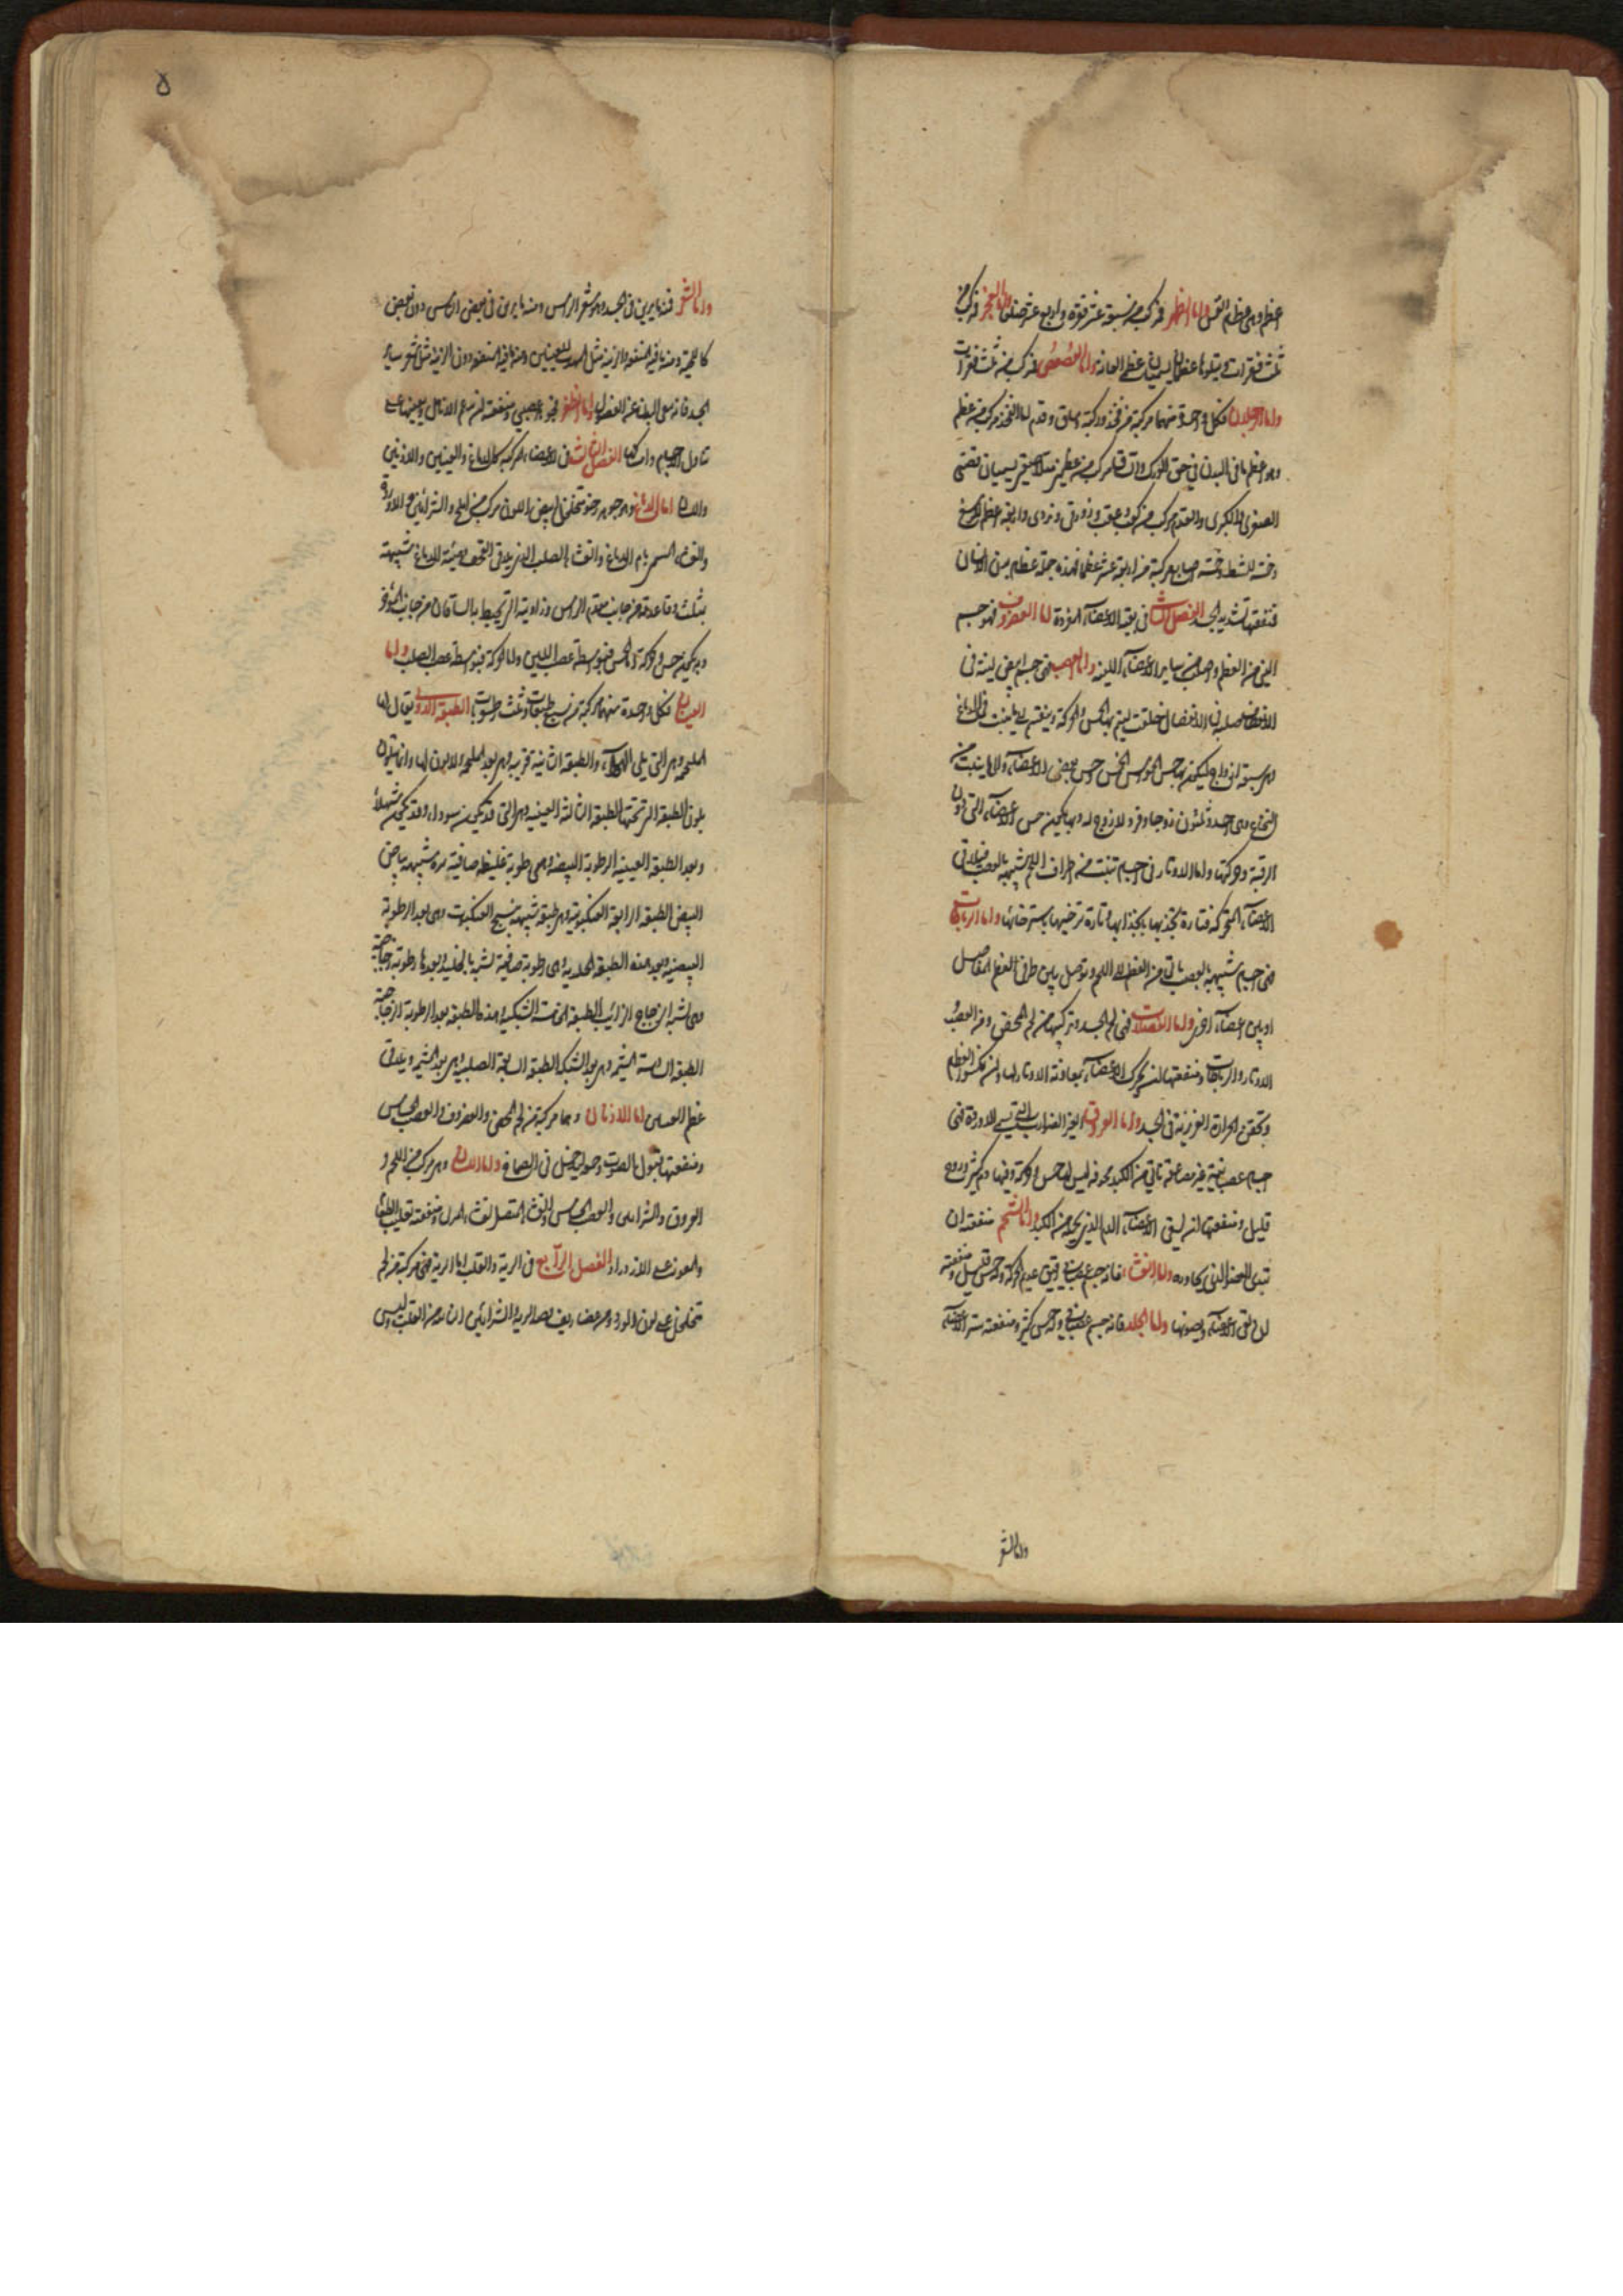 اعظم وهى عظم القس واما الظهر فمركب من سبعة عشر فقرة واربع عشر ضلعا واما العجز فمركب من
ثلث فقرات ويتلوها عظمان يسميان عظمى العانة واما العصعص فمركب من ثلث فقرات
واما الرجلان فكل واحدة منهما مركبة من فخذ وركبة وساق وقدم اما الفخذ مركب من عظم
وهو اعظم ما فى البدن فى حق الورك والساق مركب من عظمين متلاصقين يسميان قصبتى
الصغرى والكبرى والقدم مركب من كعب وعقب وزورقى ونردى واربعة اعظم للرسغ
وخمسة للمشط وخمسة اصابع مركبة من اربعة عشر عظما فهذه جملة عظام بدن الانسان
منفعتها تشديد الجسد الفصل الثانى فى بقية الاعضاء المفردة اما الغضروف فهو جسم
الين من العظم واصلب من ساير الاعضاء اللينة واما العصب فهى جسم ابيض لينة فى
الانعطاف صلبة فى الانفصال خلقت ليتم بها الحس والحركة ومنفعته ما ينبت من الدماغ
وهو سبعة ازواج ليكون بها حس الحواس الخمس وحس بعض الاعضاء والا ما ينبت من
النخاع وهى احد وثلثون زوجا وفرد لا زوج له وبها يكون حس الاعضاء التى دون
الرقبة وحركتها واما الاوتار فهى اجسام تنبت من اطراف اللحم شبيهة بالعصب فيلاقى
الاعضاء المتحركة فتارة تجذبها بانجذابها وتارة ترخيها باسترخائها واما الرباطات
فهى اجسام شبيهة بالعصب تاتى من العظم الى اللحم وتوصل بين طرفى العظم المفاصل
او بين اعضاء اخر واما العضلات فهى لحم الجسد وتركيبها من لحم المحض ومن العصب
الاوتار والرباطات ومنفعتها ان يحرك الاعضاء بمعاونة الاوتار لها وان تكسو العظم
وتحقن الحرارة الغريزية فى الجسد واما العروق الغير الضوارب التى تسمى الاوردة فهى
جسم عصبانية غير مضاعفة تاتى من الكبد مجوفة ليس لها حس وحركة وفيها دم كثير وروح
قليل ومنفعتها ان يسقى الاعضاء الدم الذى يحمله من الكبد واما الشحم منفعته ان
تندى العضو الذى يجاوره واما الغشاء فانه جسم عصبانى رقيق عديم الحركة وله حس قليل ومنفعته
ان يوقى الاعضاء ويصونها واما الجلد فانه جسم عصبانى وله حس كثير ومنفعته ستر الاعضاء
واما الشعر
ه
واما الشعر فمنه ما يزين فى الجسد وهو شعر الراس ومنه ما يزين فى بعض الناس دون بعض
كاللحية ومنه ما فيه المنفعة والزينة مثل الهدب للعينين ومنه ما فيه المنفعة دون الزينة مثل شعر ساير
الجسد فانه ينقى البدن عن الفضول واما الظفر فجزء عصبى ومنفعته ان يدعم الانامل ويعينها على
تناول الاجسام وامساكها الفصل الثالث فى الاعضاء المركبة كالدماغ والعينين والاذنين
واللسان اما الدماغ وهو جوهر رخو متخلخل ابيض اللون مركب من المخ والشرايين والاوردة
والغشاء المسمى بام الدماغ والغشاء الصلب الذى يلاقى القحف وهيئة الدماغ شبيهة
بمثلث وقاعدته من جانب مقدم الراس وزاوية التى يحيط بها الساقان من جانب المؤخر
وبه يكون حس وحركة اما الحس فبتوسط عصب اللين واما الحركة فبتوسط عصب الصلب واما
العينان فكل واحدة منهما مركبة من سبع طبقات وثلث رطوبات الطبقة الاولى يقال لها
الملتحمة وهى التى يلى الهواء، والطبقة الثانية قرنية وهى بعد الملتحمة ولا لون لها وانما يتلون
بلون الطبقة التى تحتها الطبقة الثالثة العنبية وهى التى قد تكون سوداء وقد تكون شهلاء
وبعد الطبقة العنبية الرطوبة البيضية وهى رطوبة غليظة صافية شبيهة ببياض
البيض الطبقة الرابعة العنكبوتية وهى طبقة شبيهة بنسج العنكبوت وهى بعد الرطوبة
البيضية وبعد هذه الطبقة الجلدية وهى رطوبة صافية تشبه بالجليد وبعدها رطوبة زجاجية
وهى تشبه الزجاج الذائب الطبقة الخامسة الشبكية وهذه الطبقة بعد الرطوبة الزجاجية
الطبقة السادسة المشيمة وهى بعد الشبكة الطبقة السابعة الصلبية وهى بعد المشيمة ويلاقى
عظم العينين اما الاذنان وهما مركبة من لحم المحض والغضروف والعصب الحساس
ومنفعتها قبول الصوت وحوله ليحصل فى الصماخ واما اللسان وهو مركب من اللحم و
العروق والشرايين والعصب الحساس والغشاء المتصل بغشاء المرى ومنفعته تقليب الطعام
والمعونة على الازدراد الفصل الرابع فى الرية والقلب اما الرية فهى مركبة من لحم
متخلخل على لون الورد ومن غضاريف قصبة الرية والشرايين الناشئة من القلب وليس